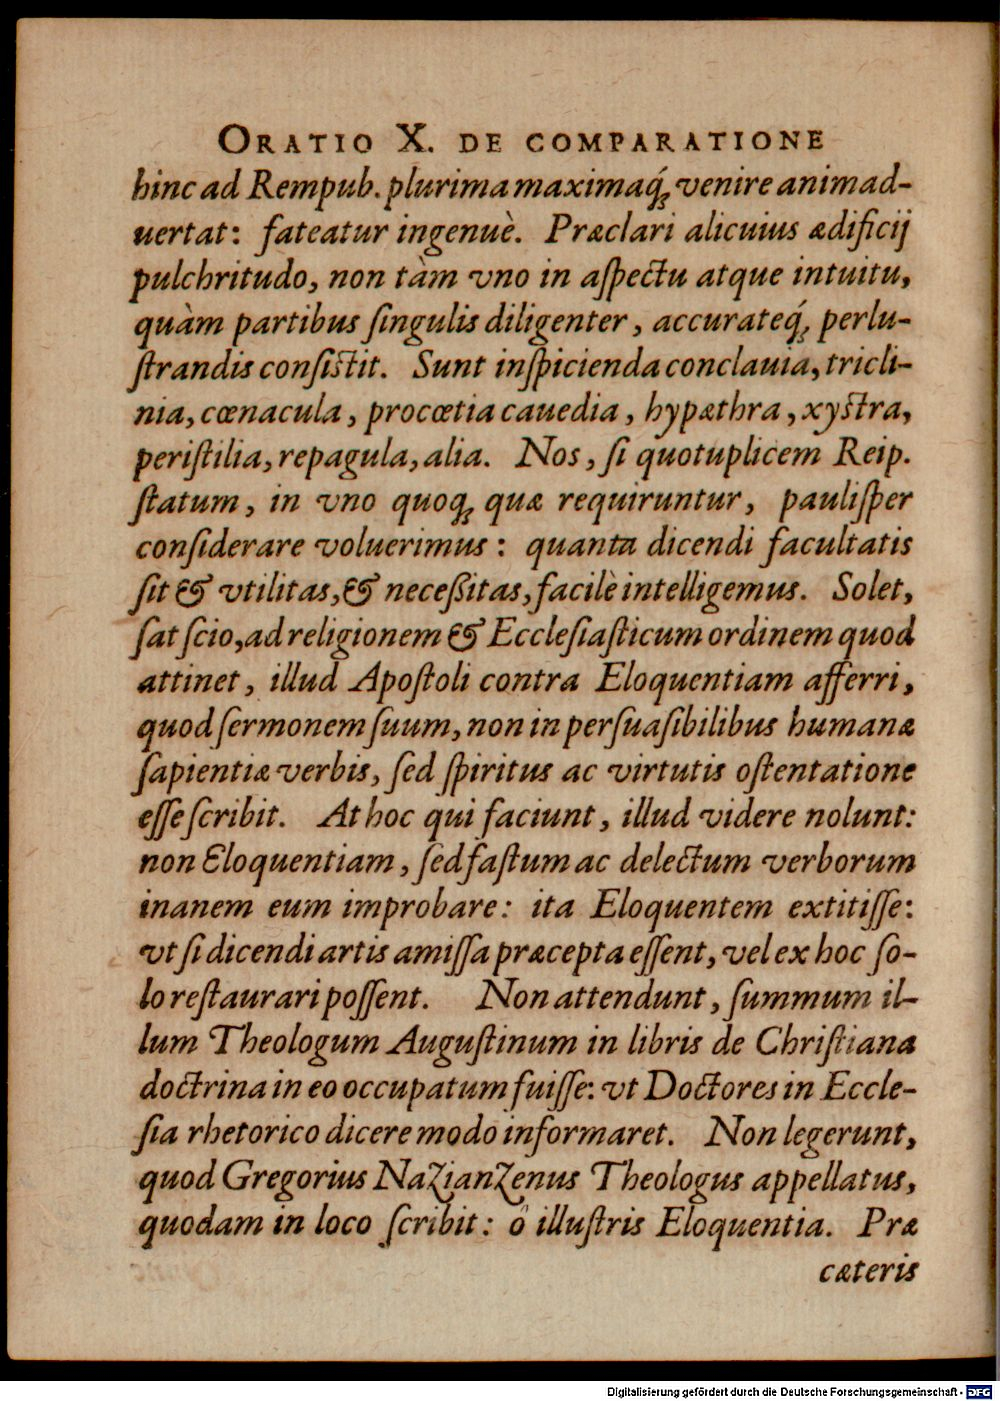 ORATIO X. DE COMPARATIONE
hinc ad Rempub. plurima maximaq́; venire animad-
uertat: fateatur ingenuè. Præclari alicuius ædificij
pulchritudo, non tàm vno in aſpectu atque intuitu,
quàm partibus ſingulis diligenter, accurateq́; perlu-
ſtrandis conſiſtit. Sunt inſpicienda conclauia, tricli-
nia, cœnacula, procœtia cauedia, hypæthra, xyſtra,
periſtilia, repagula, alia. Nos, ſi quotuplicem Reip.
ſtatum, in vno quoq; quæ requiruntur, pauliſper
conſiderare voluerimus: quanta dicendi facultatis
ſit & vtilitas, & neceßitas, facilè intelligemus. Solet,
ſat ſcio, ad religionem & Eccleſiaſticum ordinem quod
attinet, illud Apoſtoli contra Eloquentiam afferri,
quod ſermonem ſuum, non in perſuaſibilibus humanæ
ſapientiæ verbis, ſed ſpiritus ac virtutis oſtentatione
eſſe ſcribit. At hoc qui faciunt, illud videre nolunt:
non Eloquentiam, ſed faſtum ac delectum verborum
inanem eum improbare: ita Eloquentem extitiſſe:
vt ſi dicendi artis amiſſa præcepta eſſent, vel ex hoc ſo-
lo reſtaurari poſſent. Non attendunt, ſummum il-
lum Theologum Auguſtinum in libris de Chriſtiana
doctrina in eo occupatum fuiſſe: vt Doctores in Eccle-
ſia rhetorico dicere modo informaret. Non legerunt,
quod Gregorius Nazianzenus Theologus appellatus,
quodam in loco ſcribit: ô illuſtris Eloquentia. Præ
cæteris
Digitalisierung gefördert durch die Deutsche Forschungsgemeinschaft - DFG